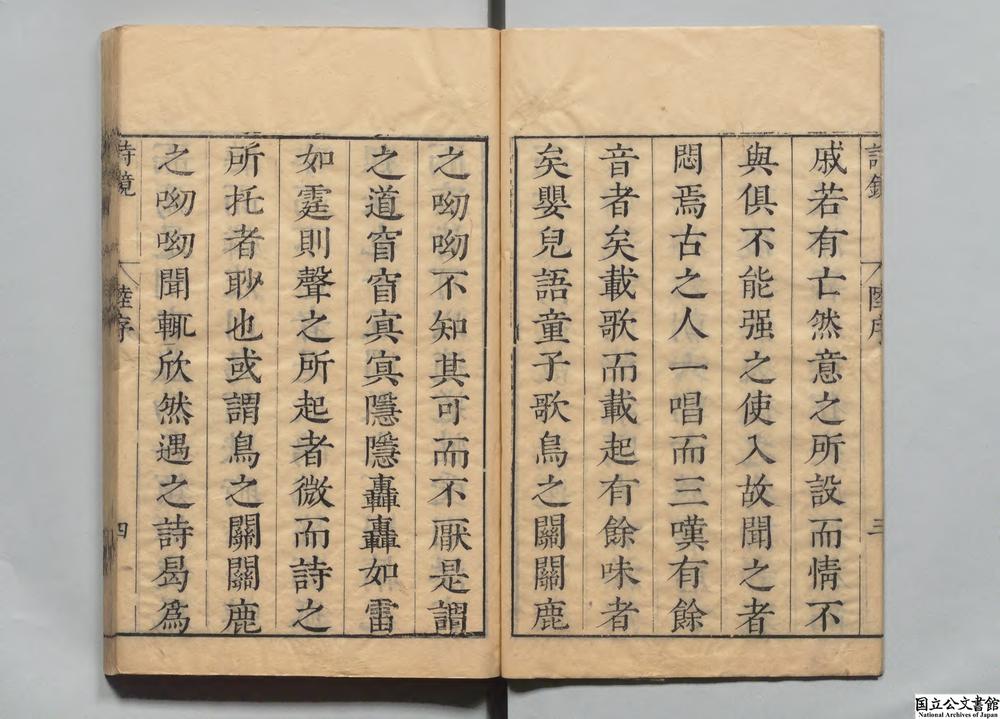 詩鏡 陸序 三
戚若有亡然意之所設而情不
與俱不能强之使入故聞之者
悶焉古之人一唱而三嘆有餘
音者矣載歌而載起有餘味者
矣嬰兒語童子歌鳥之關關鹿
之呦呦不知其可而不厭是謂
之道窅窅寘寘隱隱轟轟如雷
如霆則聲之所起者微而詩之
所托者眇也或謂鳥之關關鹿
之呦呦聞輒欣然遇之詩曷為
詩鏡 陸序 四
国立公文書館
National Archives of Japan